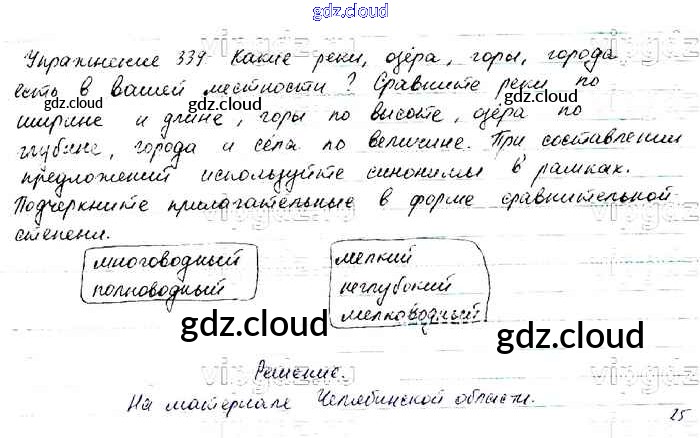 gdz.cloud
Упражнение 339. Какие реки, озёра, горы, города
есть в вашей местности? Сравните реки по
ширине и длине, горы по высоте, озёра по
глубине, города и сёла по величине. При составлении
предложений используйте синонимы в рамках.
Подчеркните прилагательные в форме сравнительной
степени.
многоводный
полноводный
мелкий
неглубокий
мелководный
gdz.cloud
gdz.cloud
gdz.cloud
gdz.cloud
gdz.cloud
gdz.cloud
Решение.
На материале Челябинской области.
25